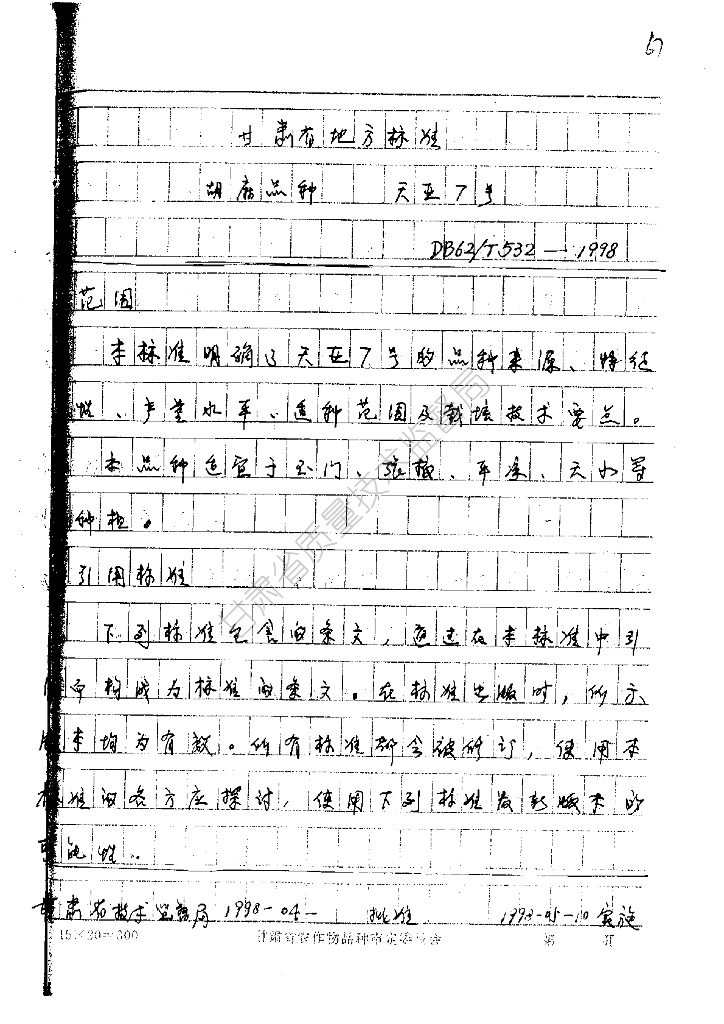 67
甘肃省地方标准
胡麻品种 天亚7号
DB62/T532—1998
范围
本标准明确了天亚7号的品种来源、特征
性、产量水平、适种范围及栽培技术要点。
本品种适宜于玉门、张掖、平凉、天水等
种植。
引用标准
下列标准包含的条文，通过在本标准中引
而构成为标准的条文。在标准出版时，所示
本均为有效。所有标准都会被修订，使用本
标准的各方应探讨，使用下列标准最新版本的
可能性。
甘肃省技术监督局 1998-04- 批准 1998-05-10实施
15×20=300 甘肃省农作物品种审定委员会 第 页
甘肃省质量技术监督局